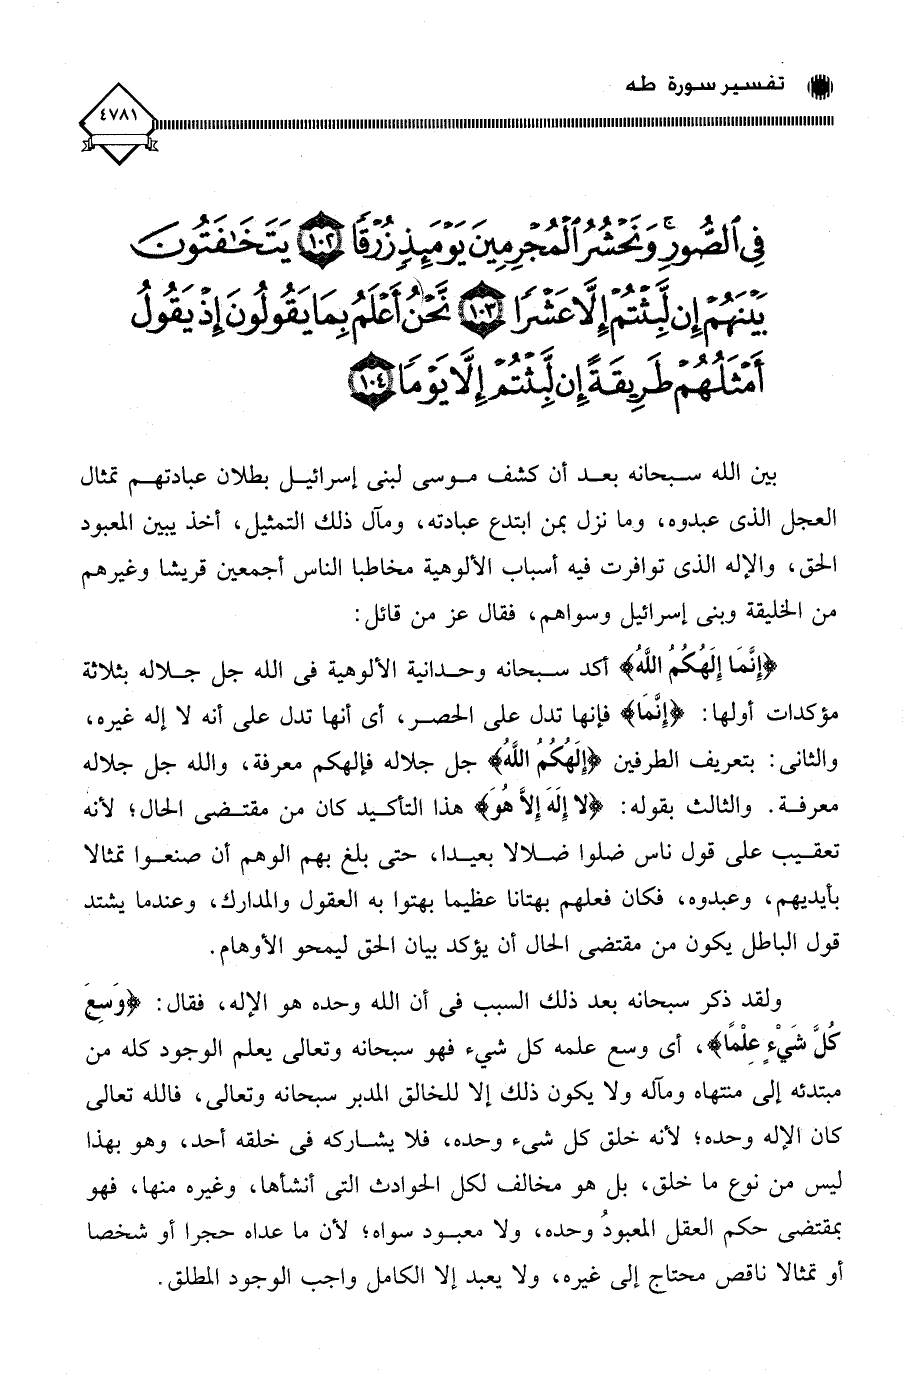 تفسير سورة طه
٤٧٨١
فِي ٱلصُّورِۚ وَنَحْشُرُ ٱلْمُجْرِمِينَ يَوْمَئِذٍ زُرْقًا ١٠٢ يَتَخَٰفَتُونَ
بَيْنَهُمْ إِن لَّبِثْتُمْ إِلَّا عَشْرًا ١٠٣ نَّحْنُ أَعْلَمُ بِمَا يَقُولُونَ إِذْ يَقُولُ
أَمْثَلُهُمْ طَرِيقَةً إِن لَّبِثْتُمْ إِلَّا يَوْمًا ١٠٤
بين الله سبحانه بعد أن كشف موسى لبنى إسرائيل بطلان عبادتهم تمثال
العجل الذى عبدوه، وما نزل بمن ابتدع عبادته، ومآل ذلك التمثيل، أخذ يبين المعبود
الحق، والإله الذى توافرت فيه أسباب الألوهية مخاطبا الناس أجمعين قريشا وغيرهم
من الخليقة وبنى إسرائيل وسواهم، فقال عز من قائل:
﴿إِنَّمَا إِلَهُكُمُ اللَّهُ﴾ أكد سبحانه وحدانية الألوهية فى الله جل جلاله بثلاثة
مؤكدات أولها: ﴿إِنَّمَا﴾ فإنها تدل على الحصر، أى أنها تدل على أنه لا إله غيره،
والثانى: بتعريف الطرفين ﴿إِلَهُكُمُ اللَّهُ﴾ جل جلاله فإلهكم معرفة، والله جل جلاله
معرفة. والثالث بقوله: ﴿لا إِلَهَ إِلاَّ هُوَ﴾ هذا التأكيد كان من مقتضى الحال؛ لأنه
تعقيب على قول ناس ضلوا ضلالا بعيدا، حتى بلغ بهم الوهم أن صنعوا تمثالا
بأيديهم، وعبدوه، فكان فعلهم بهتانا عظيما بهتوا به العقول والمدارك، وعندما يشتد
قول الباطل يكون من مقتضى الحال أن يؤكد بيان الحق ليمحو الأوهام.
ولقد ذكر سبحانه بعد ذلك السبب فى أن الله وحده هو الإله، فقال: ﴿وَسِعَ
كُلَّ شَيْءٍ عِلْمًا﴾، أى وسع علمه كل شيء فهو سبحانه وتعالى يعلم الوجود كله من
مبتدئه إلى منتهاه ومآله ولا يكون ذلك إلا للخالق المدبر سبحانه وتعالى، فالله تعالى
كان الإله وحده؛ لأنه خلق كل شىء وحده، فلا يشاركه فى خلقه أحد، وهو بهذا
ليس من نوع ما خلق، بل هو مخالف لكل الحوادث التى أنشأها، وغيره منها، فهو
بمقتضى حكم العقل المعبودُ وحده، ولا معبود سواه؛ لأن ما عداه حجرا أو شخصا
أو تمثالا ناقص محتاج إلى غيره، ولا يعبد إلا الكامل واجب الوجود المطلق.